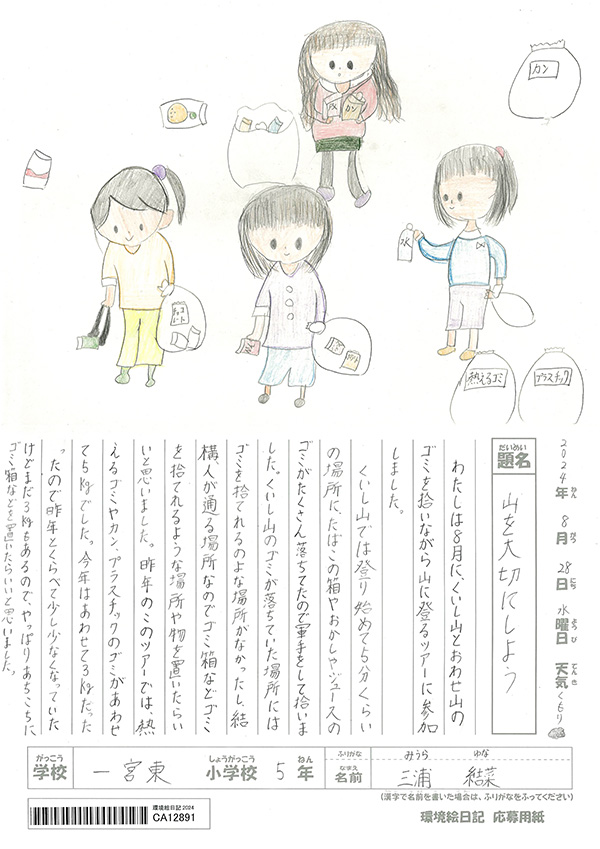 カン
水
カン
水
チョコレート
燃えるゴミ
プラスチック
2024年 8月 28日 水曜日 天気 くもり
ねん がつ にち ようび てんき
だいめい
題名
山を大切にしよう
わたしは8月に、くいし山とおわせ山の
ゴミを拾いながら山に登るツアーに参加
しました。
くいし山では登り始めて5分くらい
の場所に、たばこの箱やおかしやジュースの
ゴミがたくさん落ちてたので軍手をして拾いま
した。くいし山のゴミが落ちていた場所には
ゴミを捨てれるのような場所がなかったし、結
構人が通る場所なのでゴミ箱などゴミ
を捨てれるような場所や物を置いたらい
いと思いました。昨年のこのツアーでは、燃
えるゴミやカン、プラスチックのゴミがあわせ
て5kgでした。今年はあわせて3kgだった
ったので昨年とくらべて少し少なくなっていた
けどまだ3kgもあるので、やっぱりあちこちに
ゴミ箱などを置いたらいいと思いました。
がっこう
学校
一宮東
しょうがっこう
小学校
5
ねん
年
ふりがな
みうら ゆな
なまえ
名前
三浦 結菜
(漢字で名前を書いた場合は、ふりがなをふってください)
環境絵日記2024
CA12891
環境絵日記 応募用紙